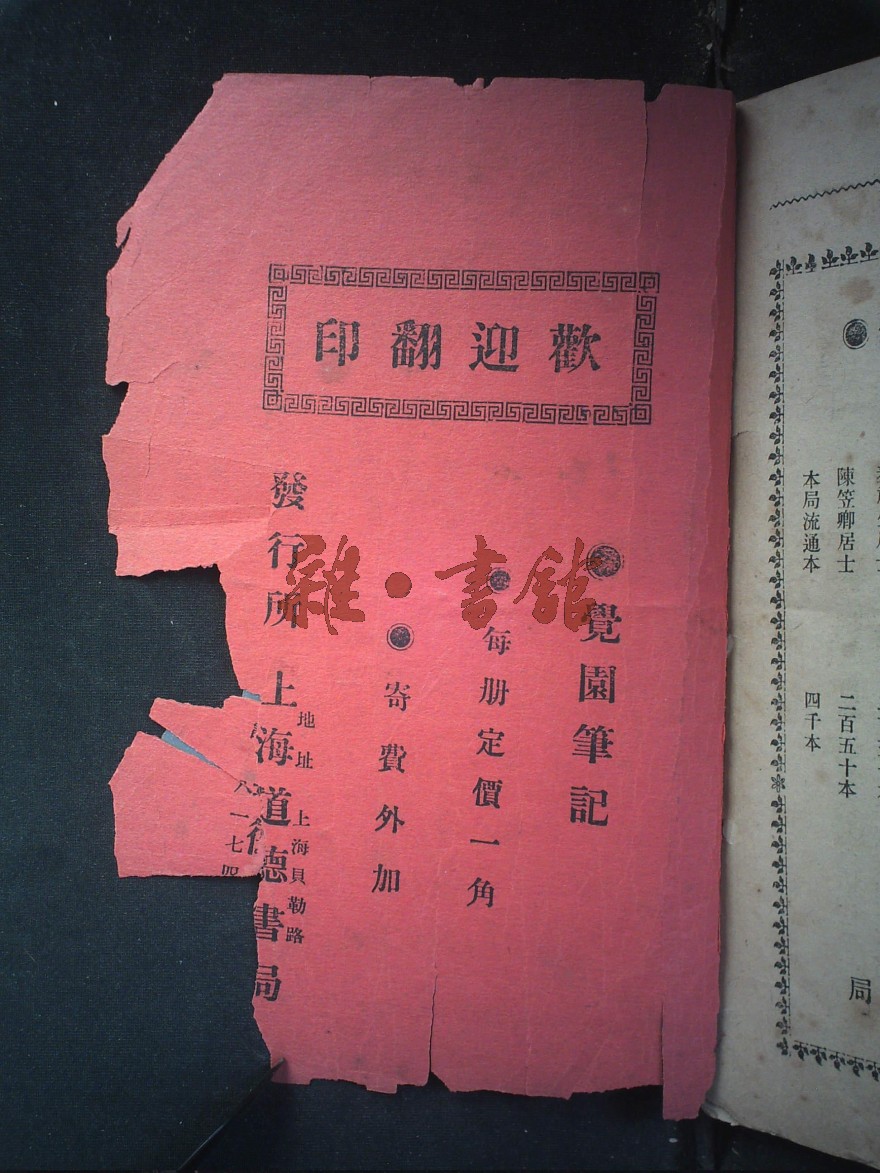 歡迎翻印
覺園筆記
每册定價一角
寄費外加
發行所 上海道德書局
地址 上海貝勒路
八一七
雜·書館
陳笠卿居士 二百五十本
本局流通本 四千本
局